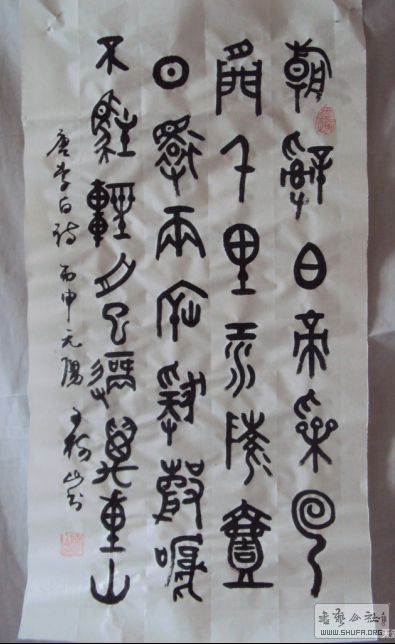 朝辭白帝彩云
間千里江陵壹
日還兩岸猿聲啼
不駐輕舟已過萬重山
唐李白詩 丙申元陽
书艺公社
WWW.SHUFA.ORG